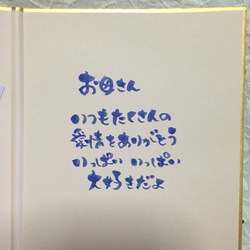 お母さん
いつもたくさんの
愛情をありがとう
いっぱい いっぱい
大好きだよ